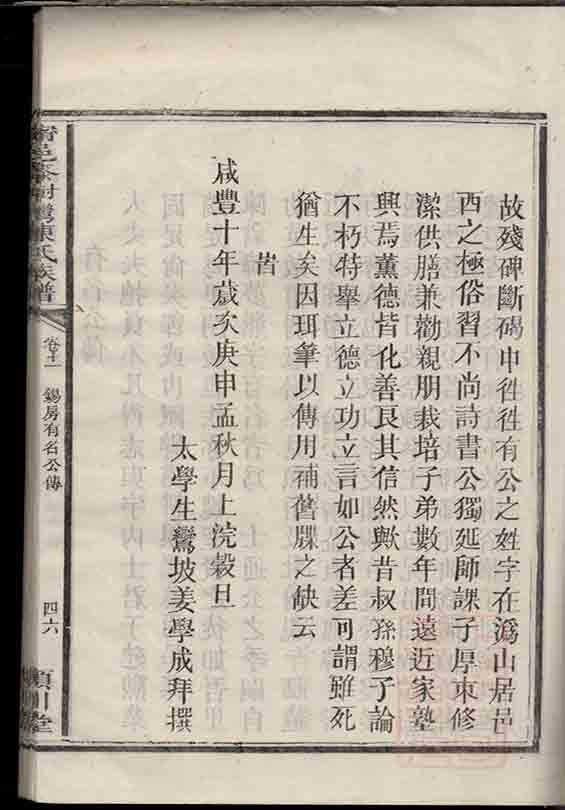 故殘碑斷碣中徃徃有公之姓字在溈山居邑
西之極俗習不尚詩書公獨延師課子厚束修
潔供膳兼勸親朋栽培子弟數年間遠近家塾
興焉薰德皆化善良其信然歟昔叔孫穆子論
不朽特舉立德立功立言如公者差可謂雖死
猶生矣因珥筆以傳用補舊牒之缺云
旹
咸豐十年歲次庚申孟秋月上浣穀旦
太學生鸞坡姜學成拜撰
陳氏族譜
卷十一
錫房有名公傳
四六
潁川堂